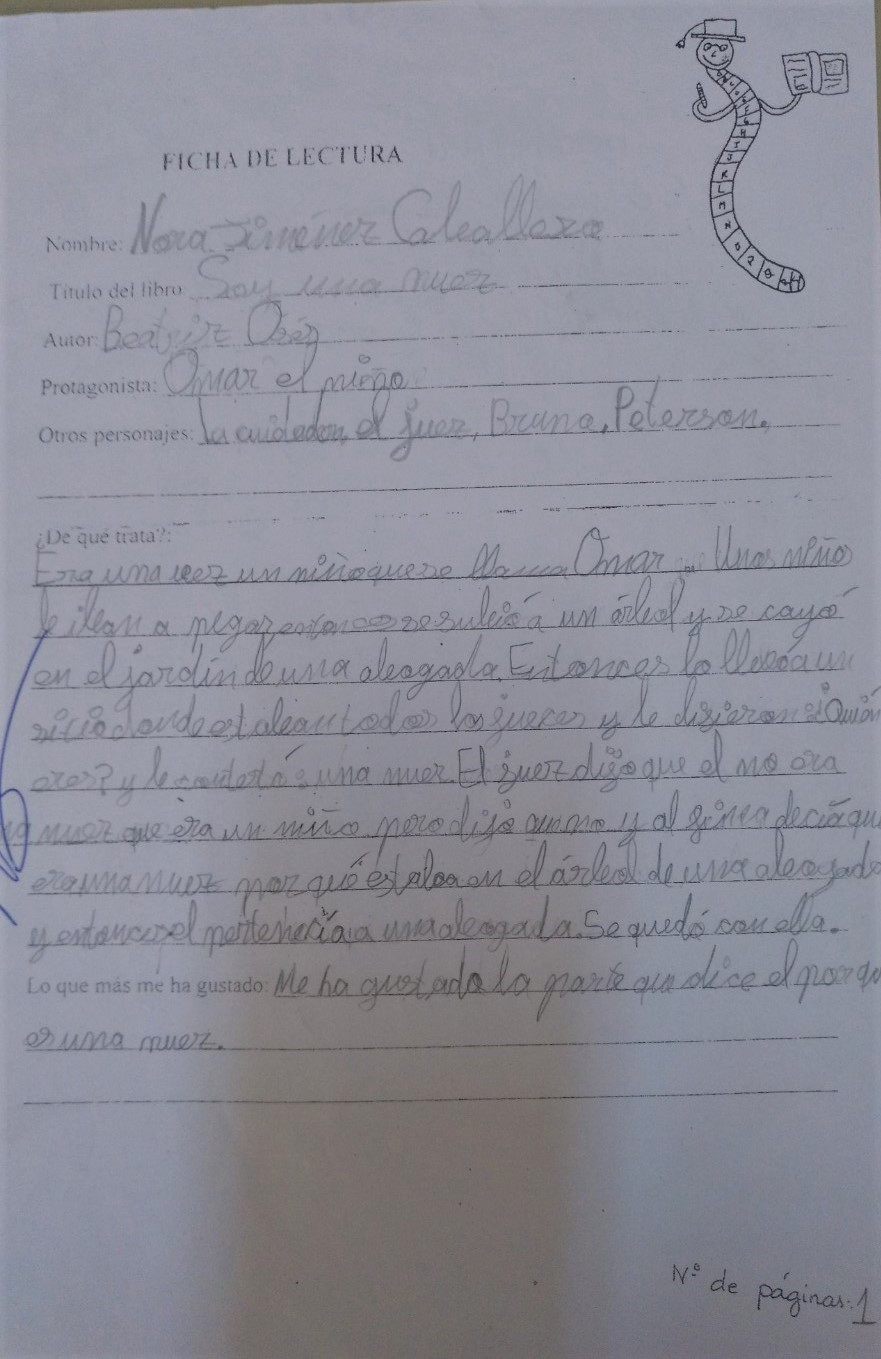 FICHA DE LECTURA
Nombre: Nora Jiménez Caballero
Título del libro: Soy una nuez
Autor: Beatriz Osés
Protagonista: Omar el niño
Otros personajes: la cuidedora, el juez, Bruna, Peterson.
¿De qué trata?:
Era una vez un niño que se llama Omar. Unos niños
le iban a pegar entonces se subió a un árbol y se cayó
en el jardín de una abogada. Entonces lo llevó a un
sitio donde estaban todos los jueces y le dijeron: ¿Quién
eres? y le contestó: una nuez. El juez dijo que el no era
una nuez que era un niño pero dijo que no y al final decía que
era una nuez porqué estaba en el árbol de una abogada
y entonces el pertenecía a una abogada. Se quedó con ella.
Lo que más me ha gustado: Me ha gustado la parte que dice el porqu
es una nuez.
Nº de páginas: 1